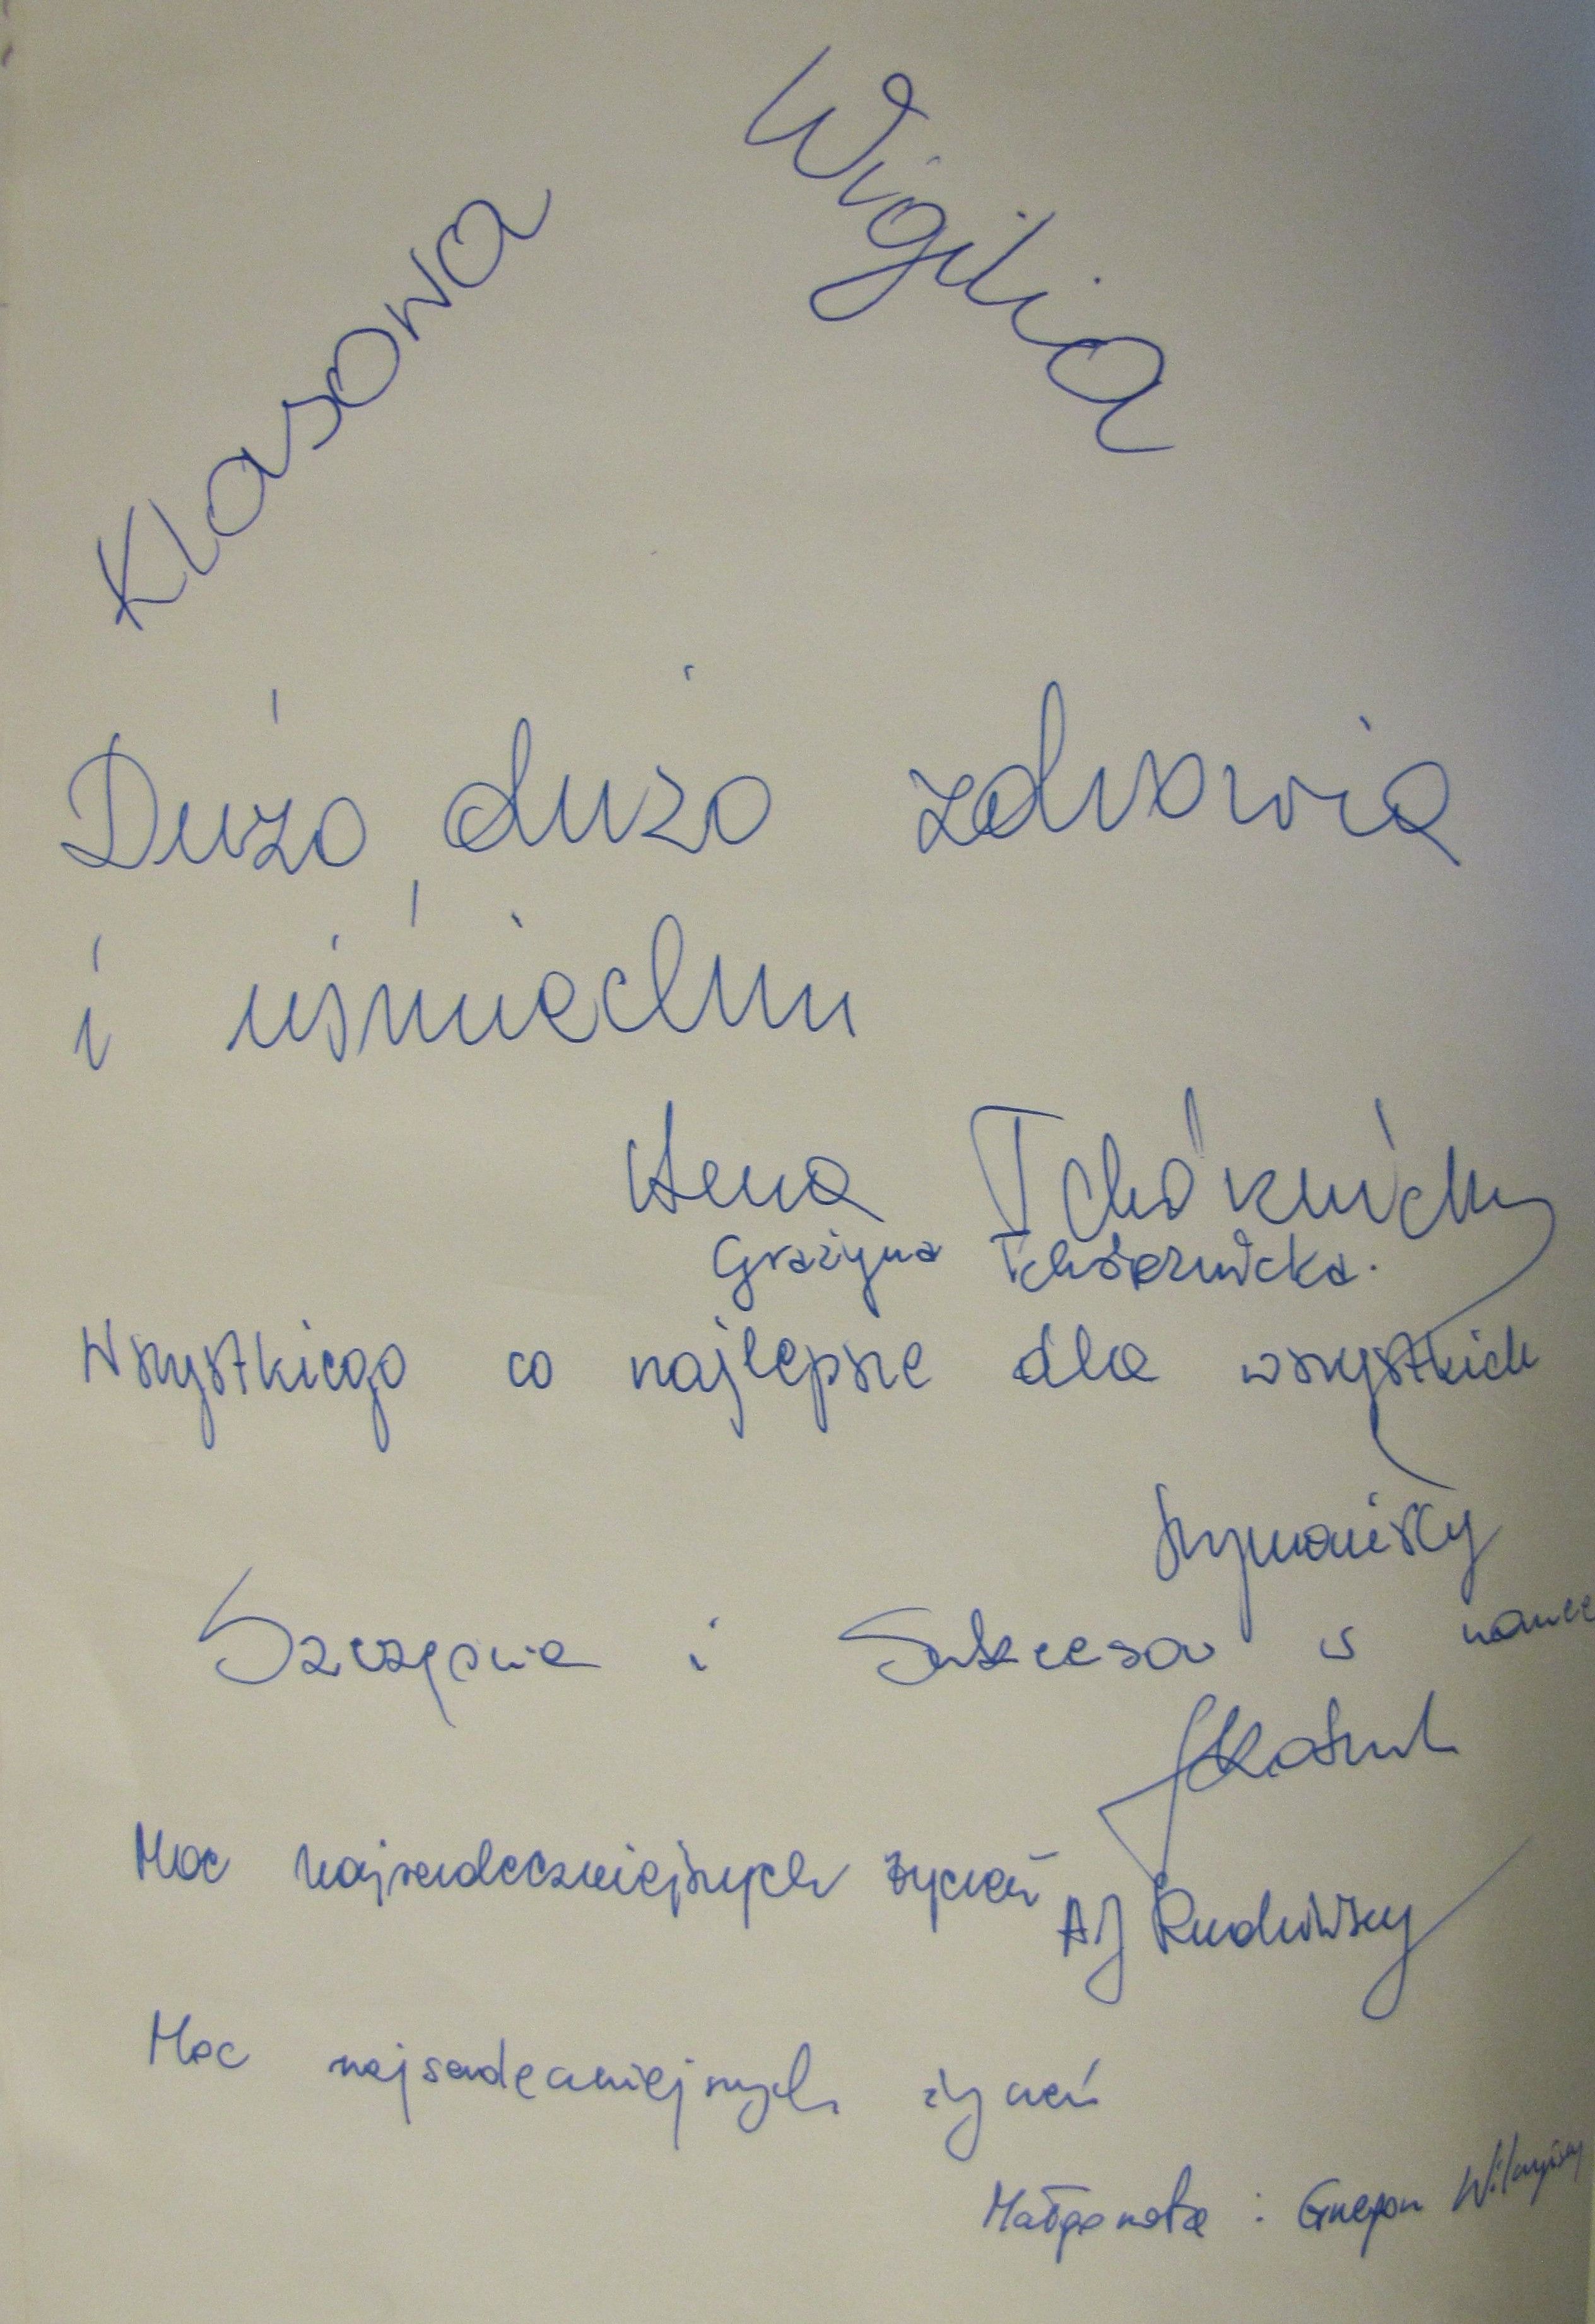 Klasowa Wigilia
Dużo, dużo zdrowia
i uśmiechu
Grażyna
Wszystkiego co najlepsze dla wszystkich
Szymańscy
Szczęścia i Sukcesów w nauce
Moc najserdeczniejszych życzeń
AJ Rudowscy
Moc najserdeczniejszych życzeń
Małgorzata i Grzegorz